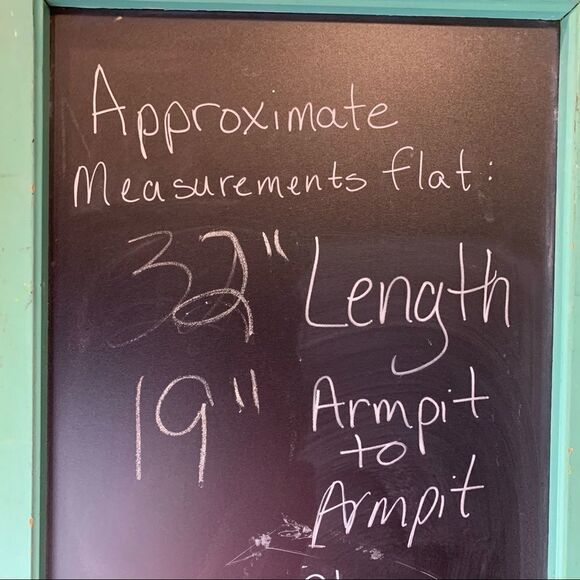 Approximate
Measurements flat:
32" Length
19" Armpit
to
Armpit